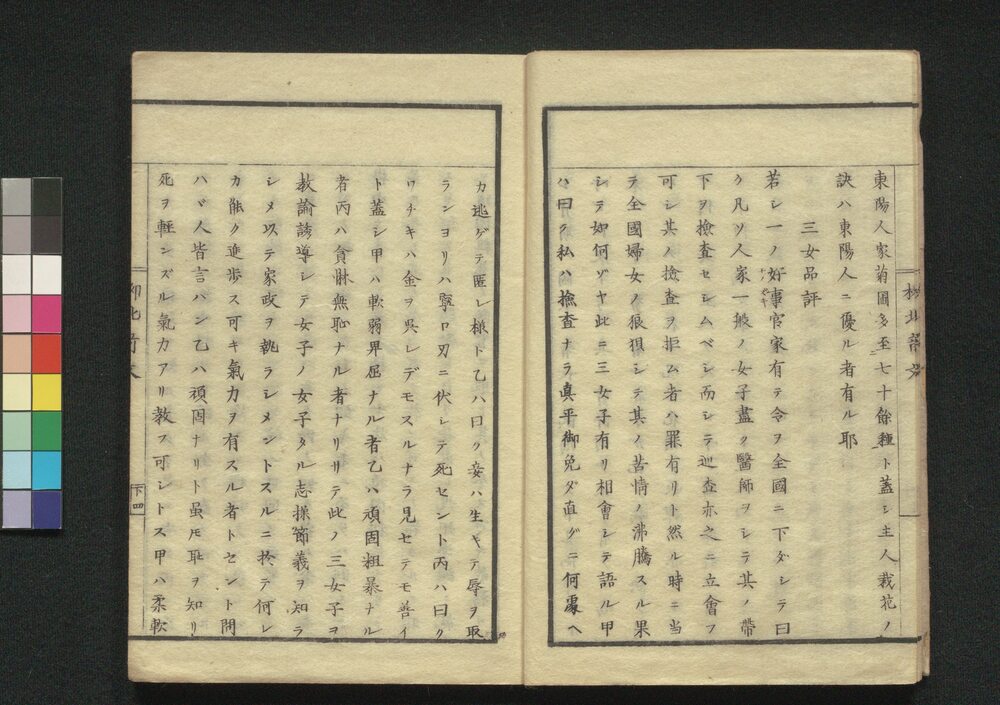 東陽人家菊圃多至七十餘種ト蓋シ主人栽苑ノ
訣ハ東陽人ニ優ル者有ル耶
三女品評
若シ一ノ好事官家有テ令ヲ全國ニ下ダシテ曰
ク凡ソ人家一般ノ女子盡ク醫師ヲシテ其ノ帶
下ヲ撿査セシムベシ而シテ巡査亦之ニ立會フ
可シ其ノ撿査ヲ拒ム者ハ罪有リト然ル時ニ当
テ全國婦女ノ狼狽シテ其ノ苦情ノ沸騰スル果
シテ如何ゾヤ此ニ三女子有リ相會シテ語ル甲
ハ曰ク私ハ撿査ナラ真平御免ダ直グニ何處ヘ
カ逃ゲテ匿レ樣ト乙ハ曰ク妾ハ生キテ辱ヲ取
ランヨリハ寧ロ刃ニ伏シテ死セント丙ハ曰ク
ワチキハ金ヲ呉レデモスルナラ見セテモ善イ
ト蓋シ甲ハ軟弱卑屈ナル者乙ハ頑固粗暴ナル
者丙ハ貪財無恥ナル者ナリリテ此ノ三女子ヲ
教諭誘導シテ女子ノ女子タル志操節義ヲ知ラ
シメ以テ家政ヲ執ラシメントスルニ於テ何レ
カ能ク進歩ス可キ氣力ヲ有スル者トセント問
ハヾ人皆言ハン乙ハ頑固ナリト虽𪜈恥ヲ知リ
死ヲ輕ンズル氣力アリ教フ可シトス甲ハ柔軟
下四